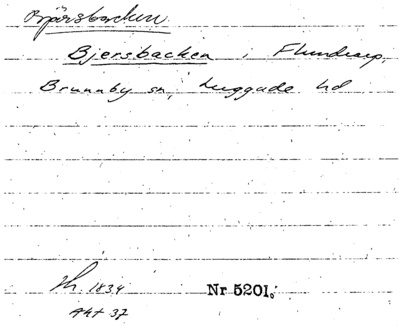 Bjärsbacken
Bjersbacken i Flundrarp,
Brunnby sn, Luggude hd
1834
Nr 5201.
Akt 37